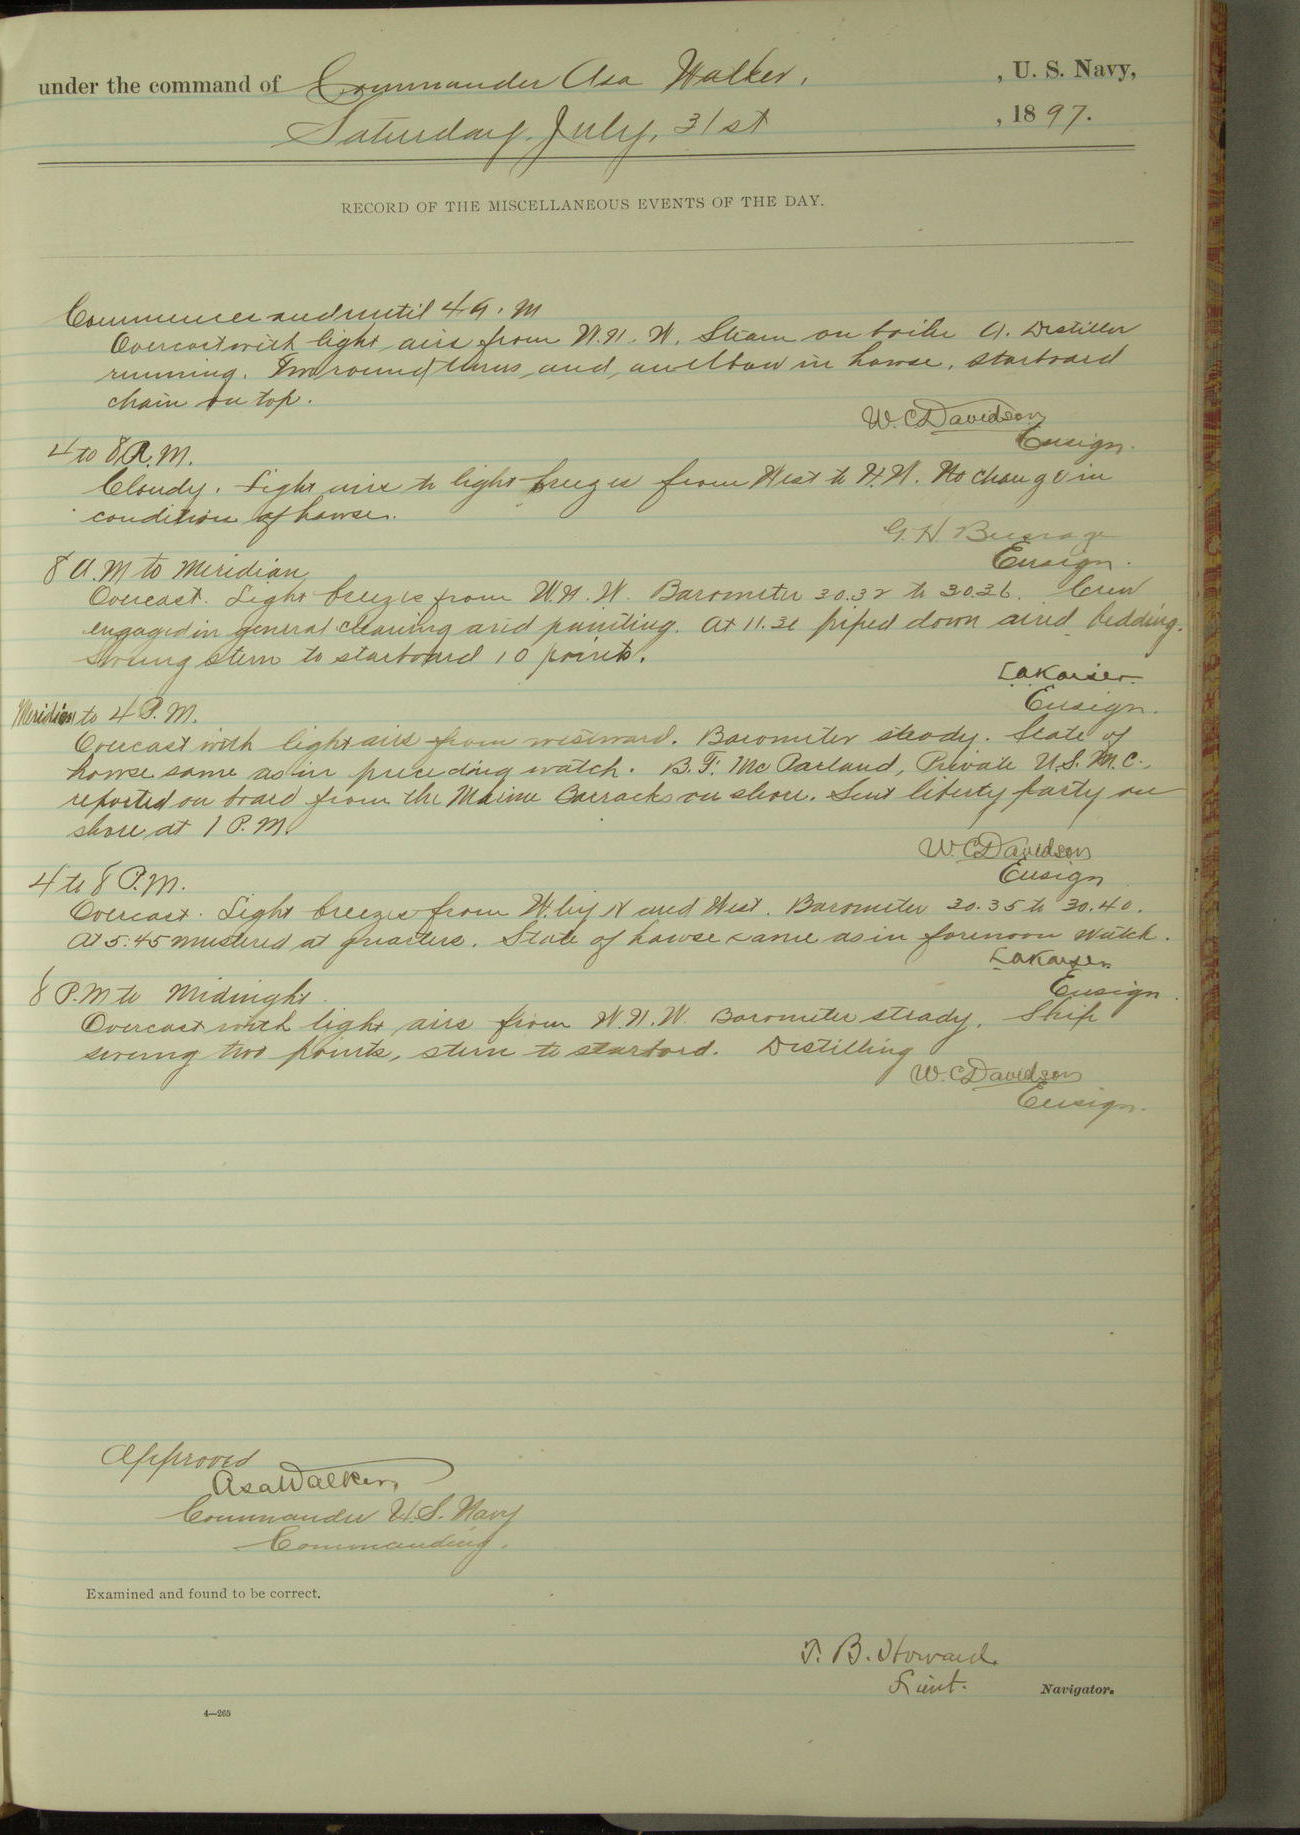 under the command of Commander Asa Walker, , U. S. Navy,
Saturday, July, 31st , 1897.
RECORD OF THE MISCELLANEOUS EVENTS OF THE DAY.
Commences and until 4 A. M
Overcast with light airs from W.N.W. Steam on boiler A. Distiller
running. Two round turns, and, an elbow in hawse, starboard
chain on top.
W. C. Davidson
Ensign.
4 to 8 A.M.
Cloudy. Light airs to light breezes from West to N.W. No change in
condition of hawse.
G. H. Burrage
Ensign.
8 A.M to Meridian
Overcast. Light breezes from W.N.W. Barometer 30.32 to 30.36. Crew
engaged in general cleaning and painting. At 11.30 piped down aired bedding.
Swung stern to starboard 10 points.
L A Kaiser
Ensign.
Meridian to 4 P.M.
Overcast with light airs from westward. Barometer steady. State of
hawse same as in preceding watch. B. F. Mc Parland, Private U.S.M.C.,
reported on board from the Marine Barracks on shore. Sent liberty party on
shore at 1 P.M.
W. C. Davidson
Ensign
4 to 8 P.M.
Overcast. Light breezes from W. by N and West. Barometer 30.35 to 30.40.
At 5:45 mustered at quarters. State of hawse same as in forenoon watch.
L A Kaiser
Ensign.
8 P.M to Midnight.
Overcast with light airs from W.N.W. Barometer steady. Ship
swung two points, stern to starbord. Distilling
W. C. Davidson
Ensign.
Approved
Asa Walker,
Commander U.S. Navy
Commanding.
Examined and found to be correct.
T. B. Howard.
Lieut. Navigator.
4—265